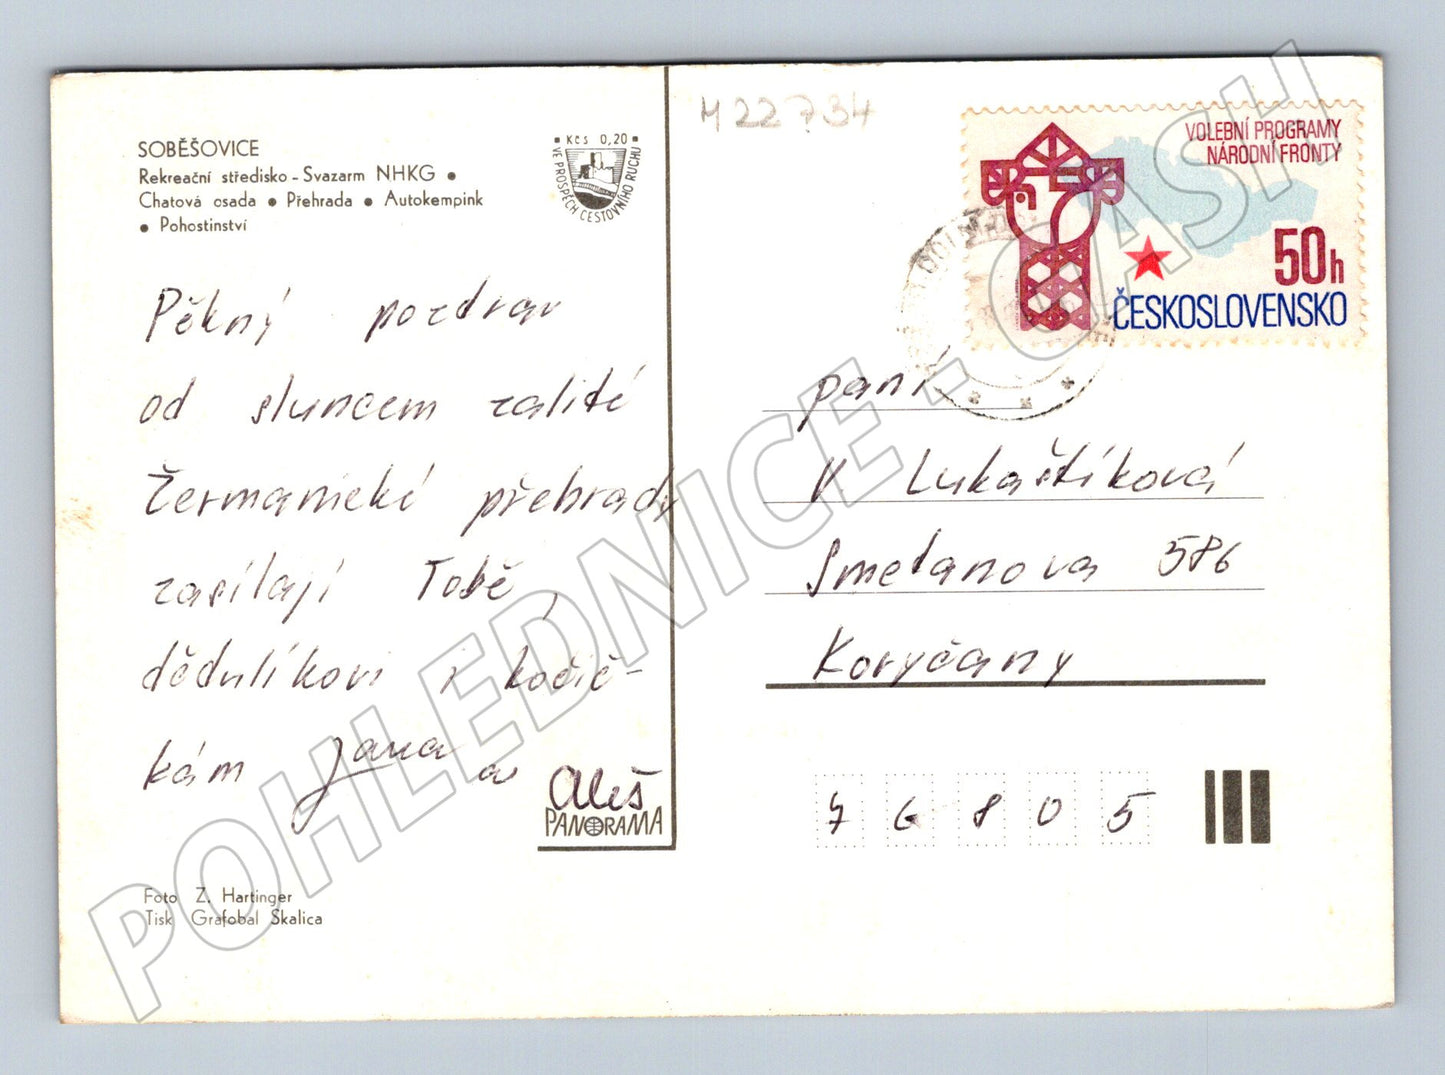 SOBĚŠOVICE
Rekreační středisko - Svazarm NHKG •
Chatová osada • Přehrada • Autokempink
• Pohostinství
Kčs 0,20
VE PROSPĚCH CESTOVNÍHO RUCHU
M 22734
VOLEBNÍ PROGRAMY
NÁRODNÍ FRONTY
50h
ČESKOSLOVENSKO
Pěkný pozdrav
od sluncem zalité
Žermanické přehrady
zasílají Tobě,
dědulíkovi i kočič-
kám Jana a Aleš
PANORAMA
Foto Z. Hartinger
Tisk Grafobal Skalica
paní
V Lukaštíková
Smetanova 586
Koryčany
76805
POHLEDNICE.CASH